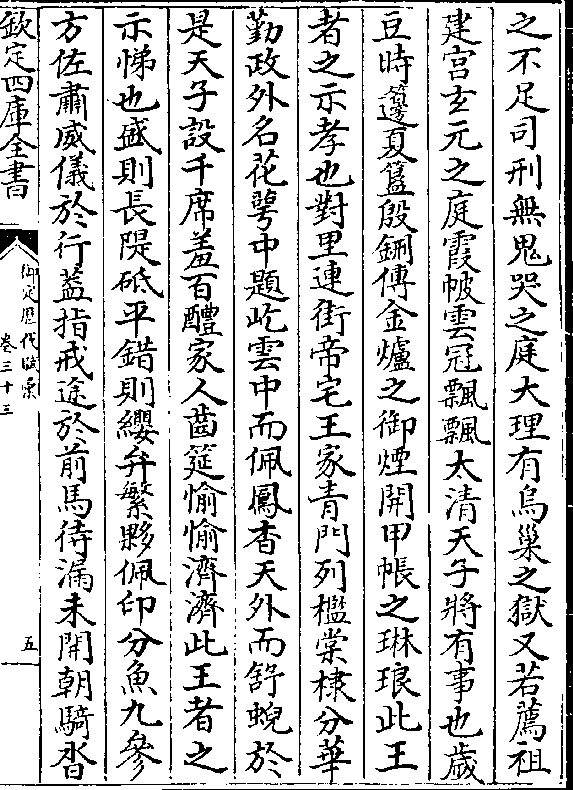 之不足司刑無鬼哭之庭大理有烏巢之獄又若薦祖
建宫玄元之庭霞帔雲冠飄飄太清天子將有事也歳
豆時籩夏簋殷鉶傳金爐之御煙開甲帳之琳琅此王
者之示孝也對里連街帝宅王家青門列檻棠棣分華
勤政外名花萼中題屹雲中而佩鳳杳天外而舒蜺於
是天子設千席羞百醴家人茵筵愉愉濟濟此王者之
示悌也盛則長隄砥平錯則纓弁繁夥佩印分魚九參
方佐肅威儀於行蓋指戒途於前馬待漏未開朝騎沓
欽定四庫全書
御定歴代賦彚
卷三十三
五